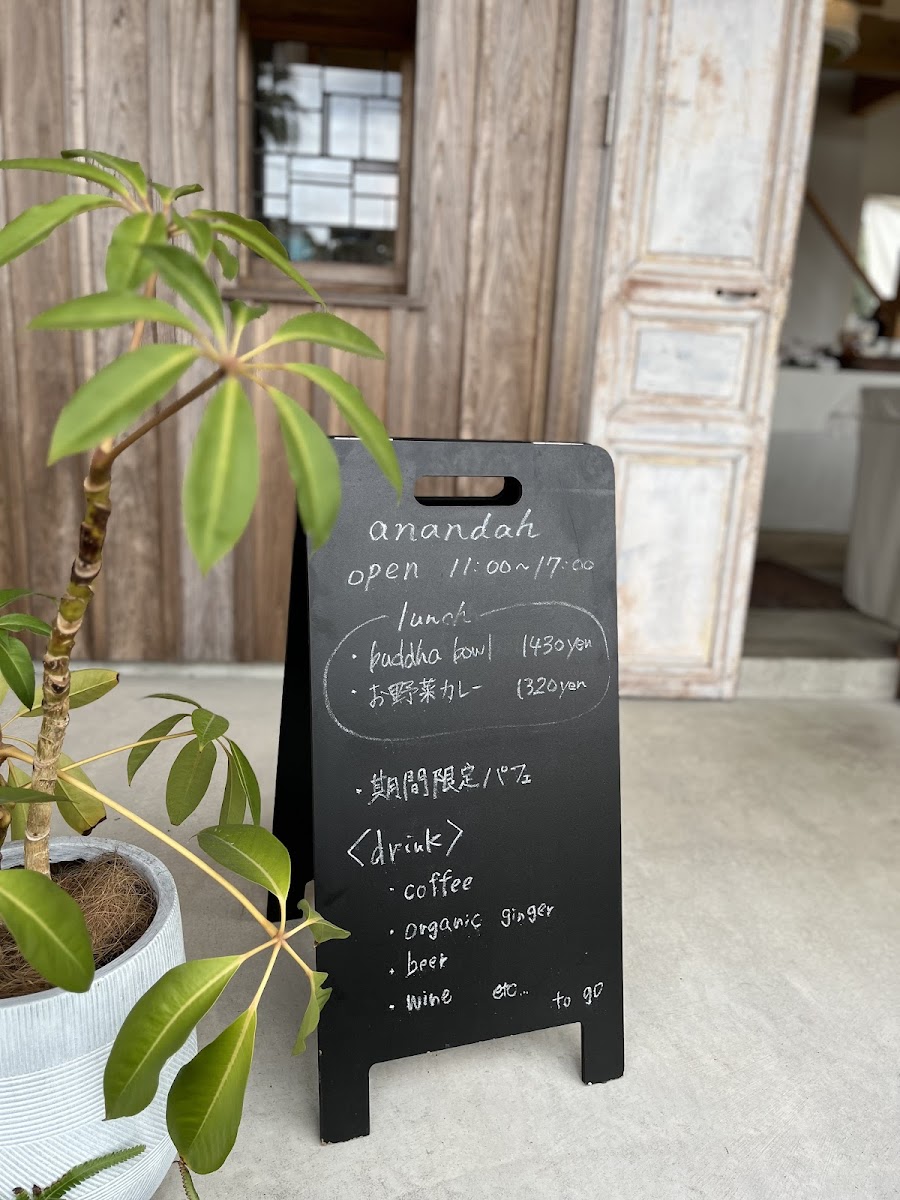 anandah
open 11:00~17:00
lunch
・buddha bowl 1430yen
・お野菜カレー 1320yen
・期間限定パフェ
<drink>
・coffee
・organic ginger
・beer
・wine etc... to go